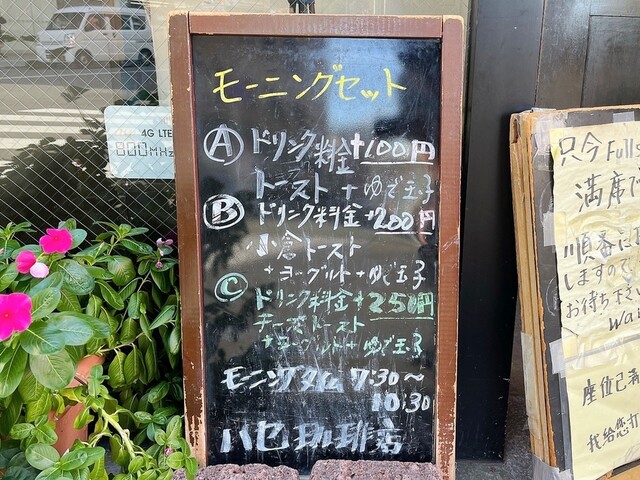 モーニングセット
Ⓐ ドリンク料金+100円
トースト+ゆで玉子
Ⓑ ドリンク料金+200円
小倉トースト
+ヨーグルト+ゆで玉子
Ⓒ ドリンク料金+250円
チーズトースト
+ヨーグルト+ゆで玉子
モーニングタイム 7:30〜
10:30
ハセ珈琲店
4G LTE
800MHz
只今 Full
満席
順番に
しますので
お待ち下さい
Wai
座位已
我给您打